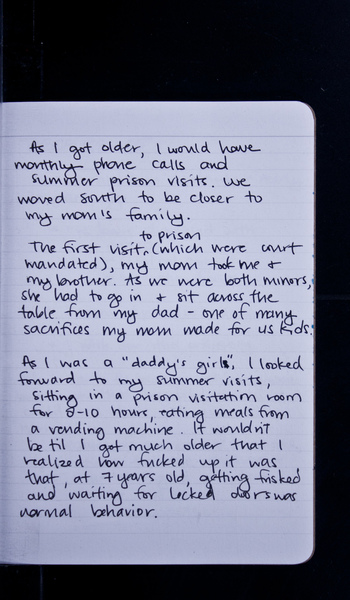 As I got older, I would have
monthly phone calls and
summer prison visits. We
moved south to be closer to
my mom's family.
to prison
The first visit, (which were court
mandated), my mom took me +
my brother. As we were both minors,
she had to go in + sit across the
table from my dad - one of many
sacrifices my mom made for us kids.
As I was a "daddy's girl", I looked
forward to my summer visits,
sitting in a prison visitation room
for 8-10 hours, eating meals from
a vending machine. It wouldn't
be til I got much older that I
realized how fucked up it was
that, at 7 years old, getting frisked
and waiting for locked doors was
normal behavior.